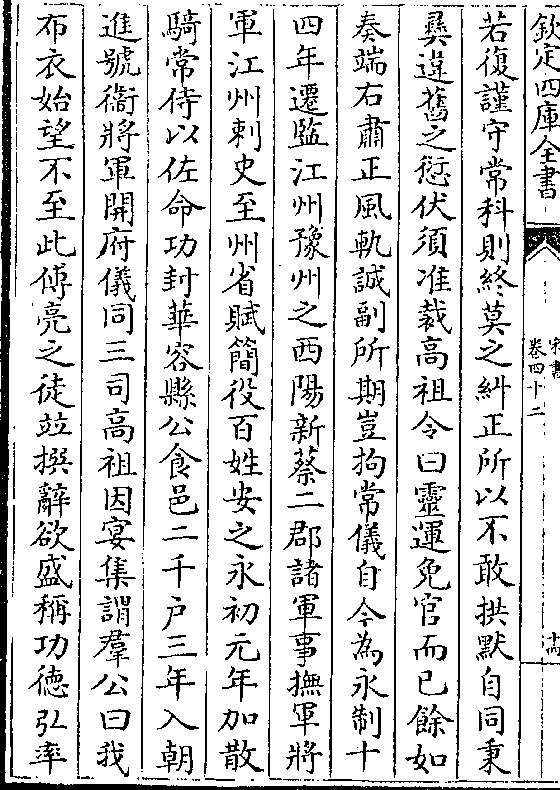 欽定四庫全書
宋書
卷四十二
十四
若復謹守常科則終莫之糾正所以不敢拱默自同秉
彛違舊之愆伏須准裁高祖令曰靈運免官而已餘如
奏端右肅正風軌誠副所期豈拘常儀自今為永制十
四年遷監江州豫州之西陽新蔡二郡諸軍事撫軍將
軍江州刺史至州省賦簡役百姓安之永初元年加散
騎常侍以佐命功封華容縣公食邑二千戶三年入朝
進號衞將軍開府儀同三司高祖因宴集謂羣公曰我
布衣始望不至此傅亮之徒竝撰辭欲盛稱功德弘率